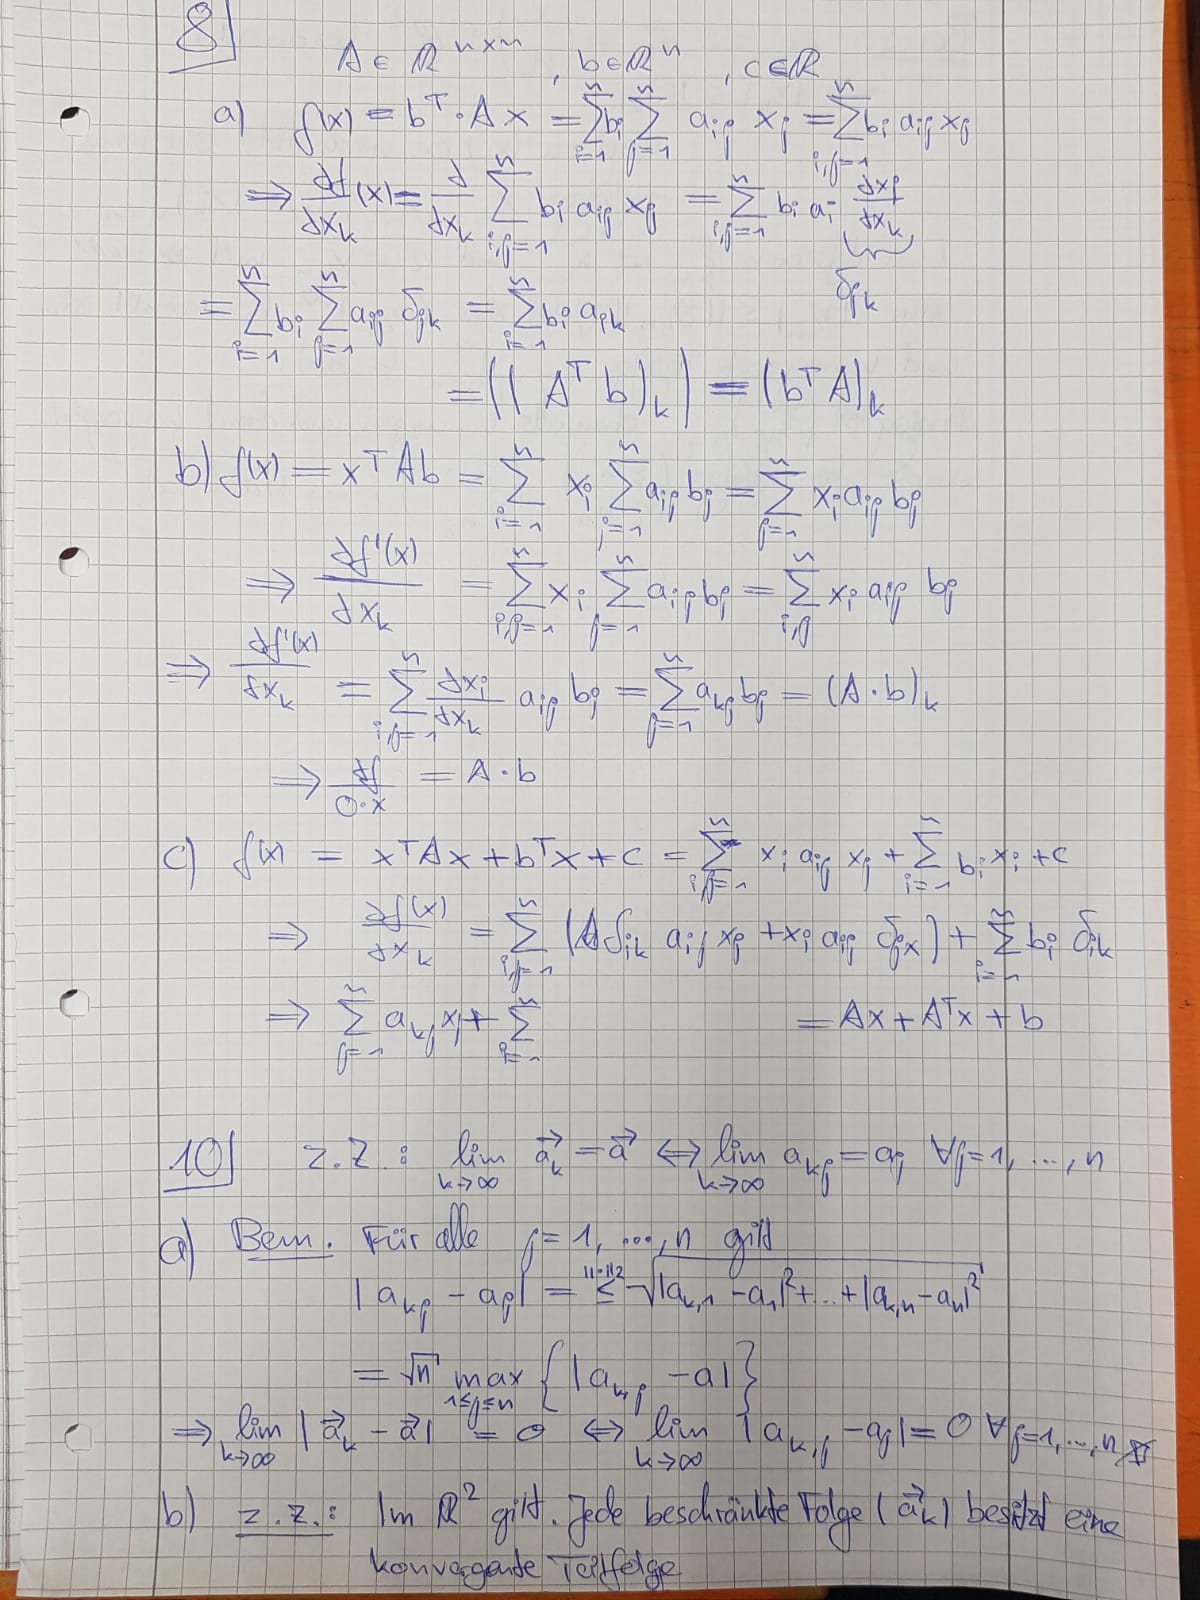 8
A ∈ ℝ^{n×n}, b∈ℝ^n, c∈ℝ
a) f(x) = b^T · A x = \sum_{i=1}^n b_i \sum_{j=1}^n a_{ij} x_j = \sum_{i,j=1}^n b_i a_{ij} x_j
⇒ \frac{∂f}{∂x_k}(x) = \frac{∂}{∂x_k} \sum_{i,j=1}^n b_i a_{ij} x_j = \sum_{i,j=1}^n b_i a_i \frac{∂x_j}{∂x_k}
δ_{jk}
= \sum_{i=1}^n b_i \sum_{j=1}^n a_{ij} δ_{jk} = \sum_{i=1}^n b_i a_{ik}
= ((A^T b)_k) = (b^T A)_k
b) f(x) = x^T A b = \sum_{i=1}^n x_i \sum_{j=1}^n a_{ij} b_j = \sum_{j=1}^n x_i a_{ij} b_j
⇒ \frac{∂f'(x)}{∂x_k} = \sum_{i,j=1}^n x_i \sum_{j=1}^n a_{ij} b_j = \sum_{i,j}^n x_i a_{ij} b_j
⇒ \frac{∂f'(x)}{∂x_k} = \sum_{i,j=1}^n \frac{∂x_i}{∂x_k} a_{ij} b_j = \sum_{j=1}^n a_{kj} b_j = (A · b)_k
⇒ \frac{∂f}{∂·x} = A · b
c) f(x) = x^T A x + b^T x + c = \sum_{i,j=1}^n x_i a_{ij} x_j + \sum_{i=1}^n b_i x_i + c
⇒ \frac{∂f(x)}{∂x_k} = \sum_{i,j=1}^n (δ_{ik} a_{ij} x_j + x_i a_{ij} δ_{jx}) + \sum_{i=1}^n b_i δ_{ik}
⇒ \sum_{j=1}^n a_{kj} x_j + \sum_{i=1}^n = Ax + A^T x + b
10 z.Z.: \lim_{k→∞} \vec{a}_k = \vec{a} ⇔ \lim_{k→∞} a_{kj} = a_j ∀j=1, ..., n
a) Bem. Für alle j = 1, ..., n gilt
|a_{kj} - a_j| = ≤^{||·||_2} \sqrt{|a_{k,1} - a_1|^2 + ... + |a_{k,n} - a_n|^2}
= \sqrt{n} \max_{1≤j≤n} {|a_{k,j} - a|}
⇒ \lim_{k→∞} |\vec{a}_k - \vec{a}| = 0 ⇔ \lim_{k→∞} |a_{k,j} - a_j| = 0 ∀j=1, ..., n
b) z.Z.: Im ℝ^2 gilt. Jede beschränkte Folge (\vec{a}_k) besitzt eine
konvergente Teilfolge